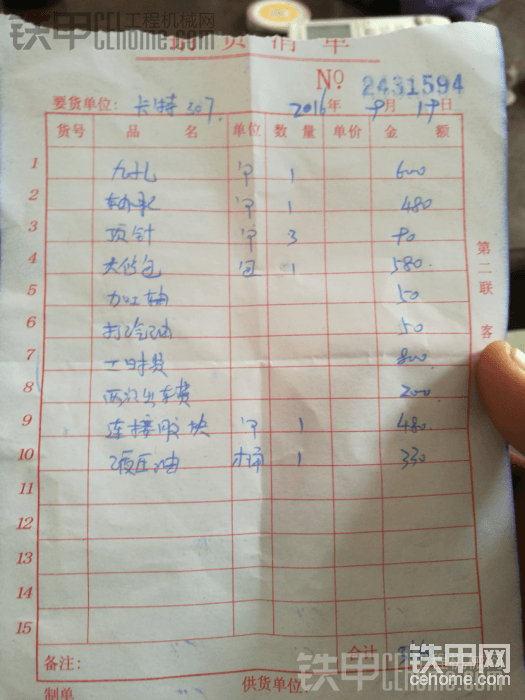 铁甲 工程机械网
CEhome.com
购货清单
NO 2431594
要货单位: 卡特307. 2016年9月19日
货号 品名 单位 数量 单价 金额
1 九孔 个 1 600
2 轴承 个 1 480
3 顶针 个 3 90
4 大修包 包 1 580
5 加工轴 50
6 打冷油 50
7 工时费 800
8 两次出车费 200
9 连接胶块 个 1 480
10 液压油 桶 1 330
11
12
13
14
15
第二联 客
合计
备注:
制单 供货单位:
铁甲网
CEHOME.COM